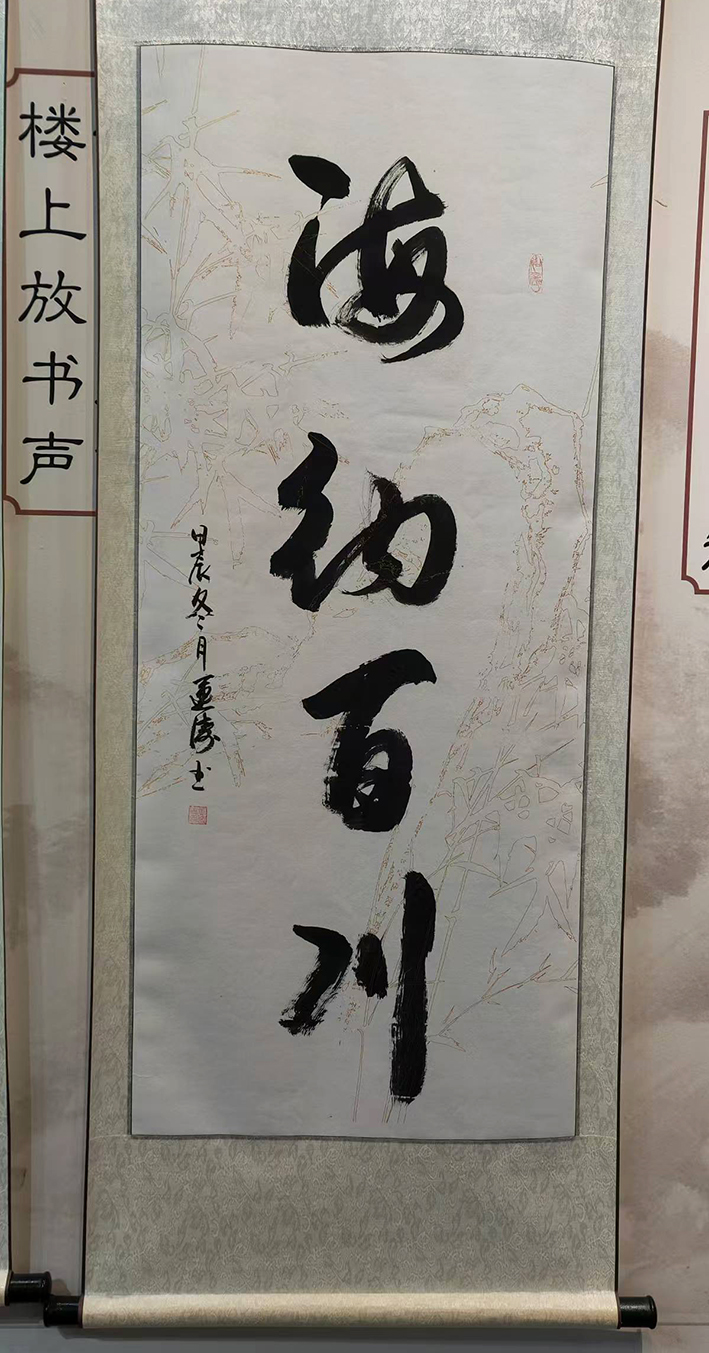 楼上放书声
海纳百川
甲辰冬月亚涛书